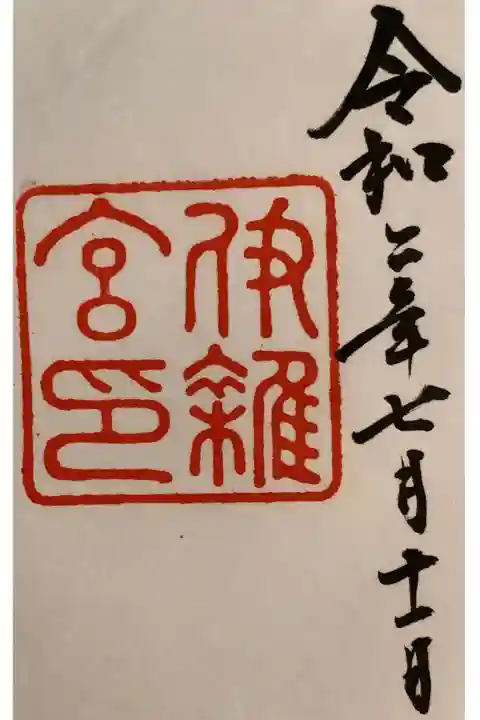 令和二年七月十一日
伊雜
宮印